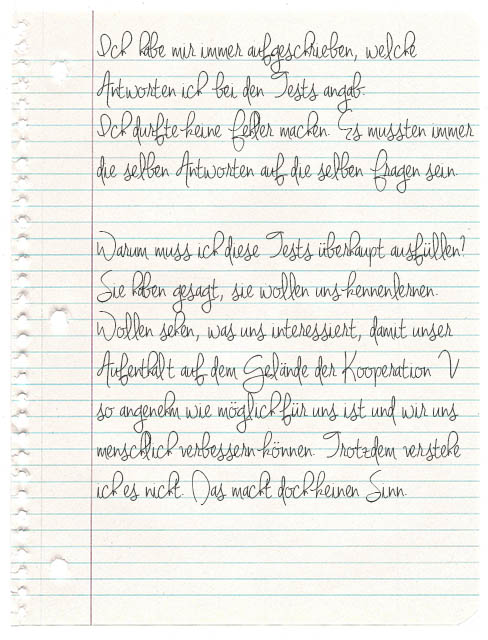 Ich habe mir immer aufgeschrieben, welche
Antworten ich bei den Tests angab.
Ich durfte keine Fehler machen. Es mussten immer
die selben Antworten auf die selben Fragen sein.
Warum muss ich diese Tests überhaupt ausfüllen?
Sie haben gesagt, sie wollen uns kennenlernen.
Wollen sehen, was uns interessiert, damit unser
Aufenthalt auf dem Gelände der Kooperation V
so angenehm wie möglich für uns ist und wir uns
menschlich verbessern können. Trotzdem verstehe
ich es nicht. Das macht doch keinen Sinn.